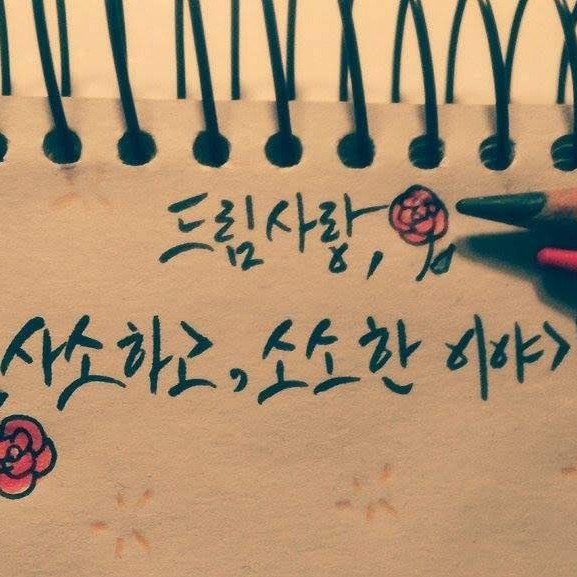 드림사랑,
사소하고, 소소한 이야